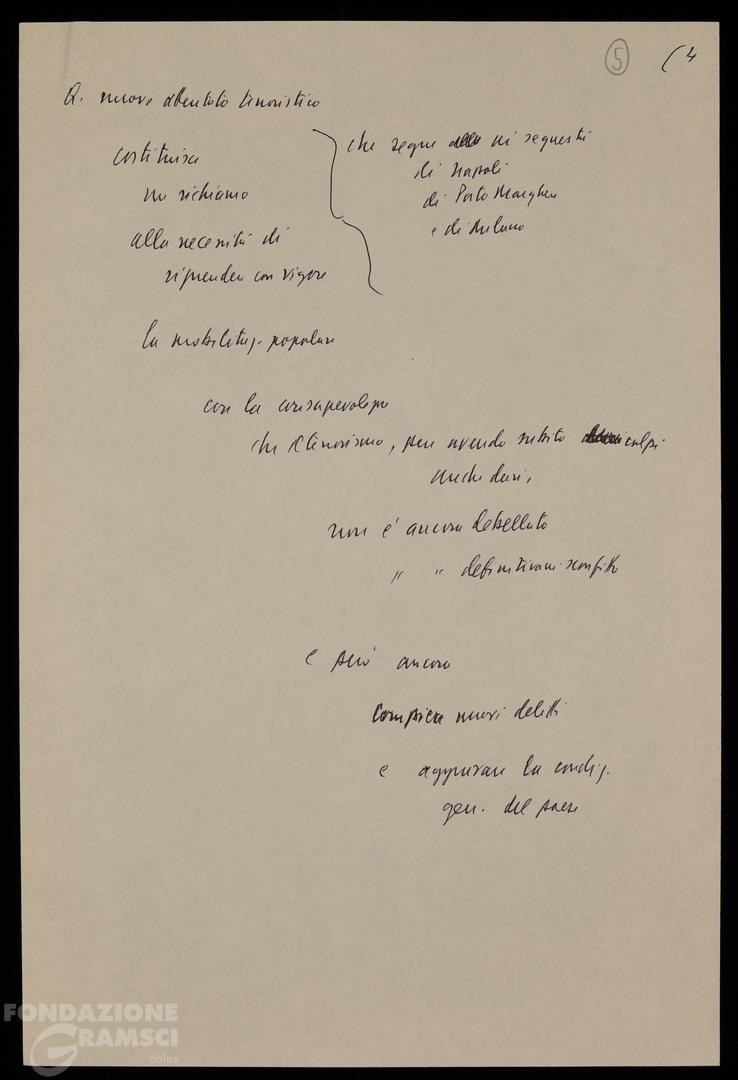 5 (4
Q. nuovo attentato terroristico
costituisce
un richiamo
alla necessità di
riprender con vigore
che segue ai sequestri
di Napoli
di Porto Marghera
e di Milano
la mobilitaz. popolare
con la consapevolezza
che il terrorismo, pur avendo subito colpi
anche duri,
non è ancora debellato
" " definitivam. sconfitto
e può ancora
compiere nuovi delitti
e aggravare la condiz.
gen. del paese
FONDAZIONE
GRAMSCI
onlus